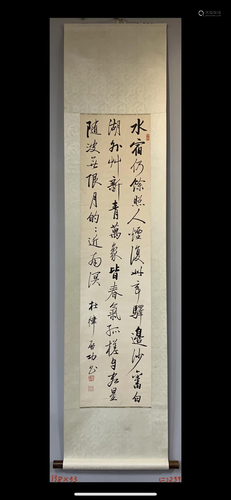 水宿仍餘照人煙復此亭驛邊沙舊白
湖外艸新青萬象皆春氣孤槎自客星
随波無限月的〻近南溟 杜律 启功书
138×33